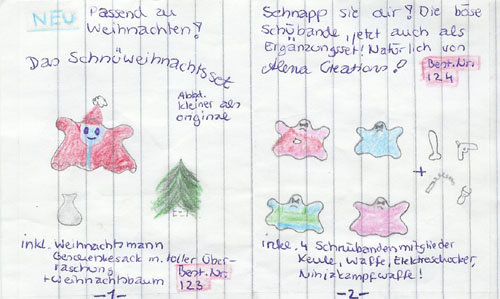 NEU
Passend zu
Weihnachten!
Das Schnüweihnachtsset
Abbd.
kleiner als
original
inkl. Weihnachtsmann
Geschenkesack m. toller Über-
raschung
+ Weihnachtbaum
Best.Nr.:
123
-1-
Schnapp sie dir! Die böse
Schübande, jetzt auch als
Ergänzungsset! Natürlich von
Alena Creations!
Best.Nr.:
124
+
inkl. 4 Schnübandenmitglieder
Keule, Waffe, Elektroschocker,
Ninjakampfwaffe!
-2-